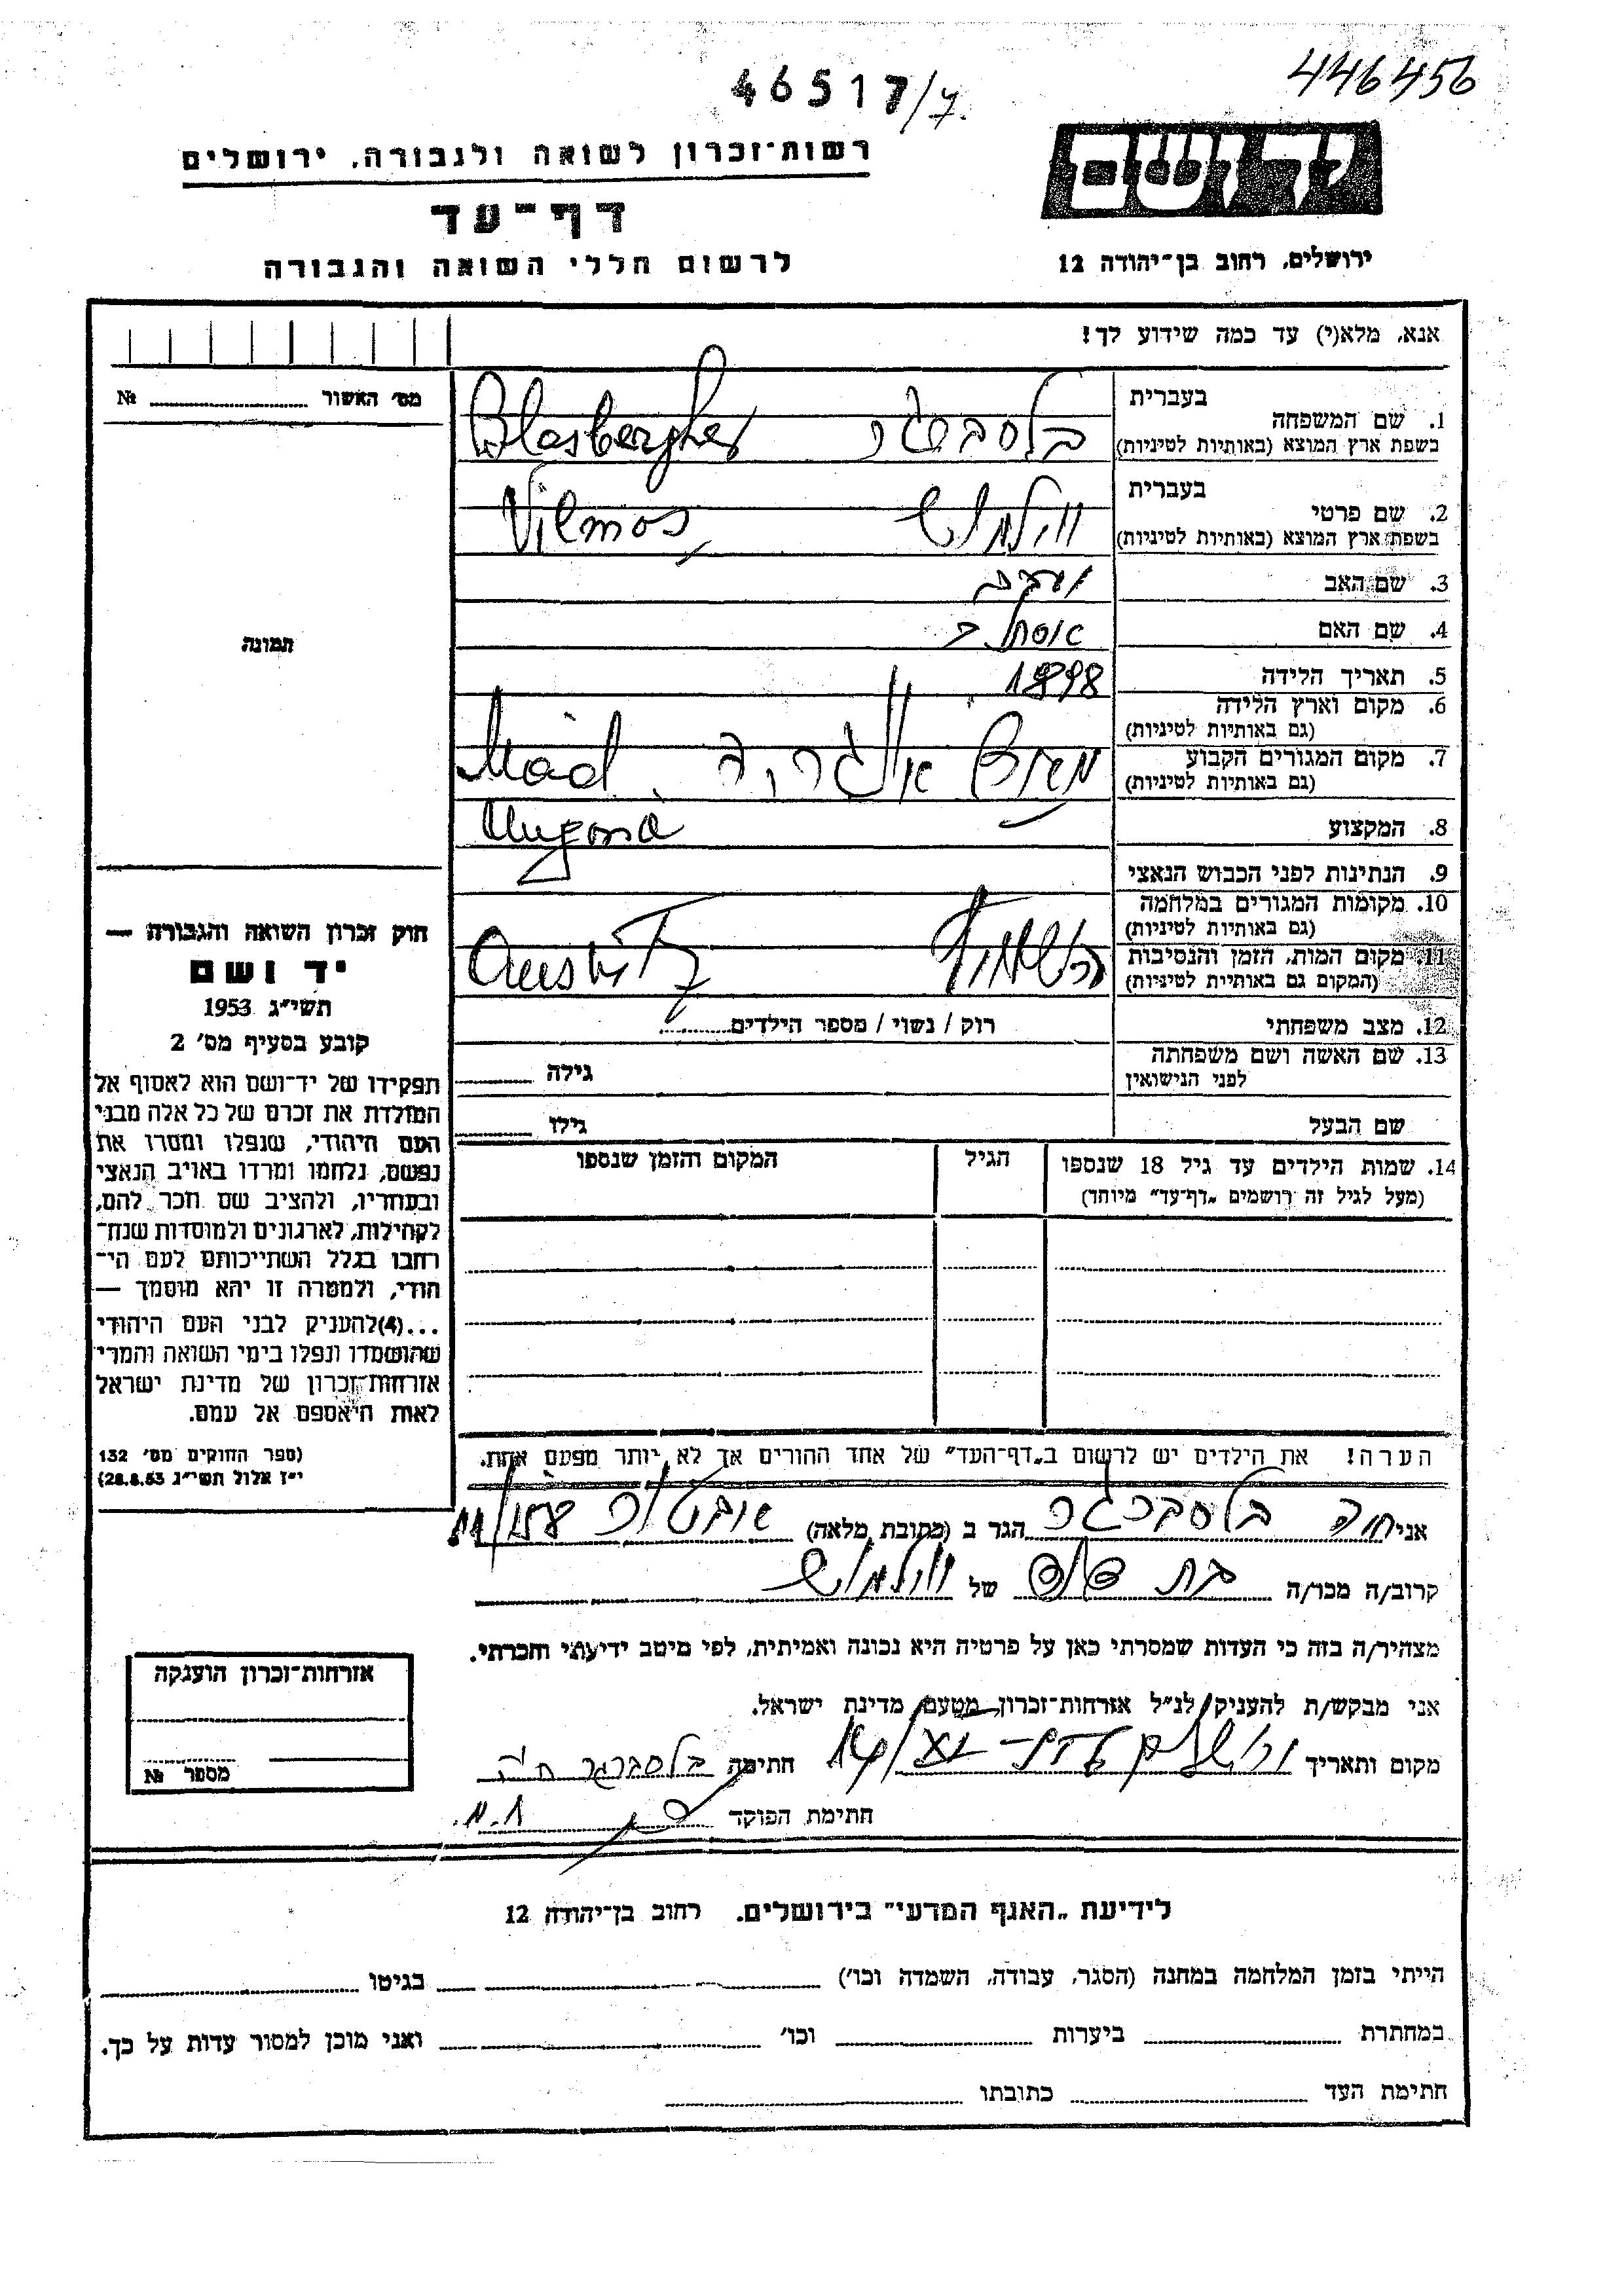 446456
46517/7.
יד ושם
רשות־זכרון לשואה ולגבורה, ירושלים
דף־עד
ירושלים, רחוב בן־יהודה 12
לרשום חללי השואה והגבורה
אנא, מלא(י) עד כמה שידוע לך!
מס' האשור № 
1. שם המשפחה
בעברית
בשפת ארץ המוצא (באותיות לטיניות)
בלסברגר Blasbergher
2. שם פרטי
בעברית
בשפת ארץ המוצא (באותיות לטיניות)
וילמוש Vilmos
3. שם האב
4. שם האם
5. תאריך הלידה 1898
6. מקום וארץ הלידה
(גם באותיות לטיניות)
7. מקום המגורים הקבוע
(גם באותיות לטיניות)
Mád
8. המקצוע
9. הנתינות לפני הכבוש הנאצי
10. מקומות המגורים במלחמה
(גם באותיות לטיניות)
11. מקום המות, הזמן והנסיבות
(המקום גם באותיות לטיניות)
12. מצב משפחתי רוק / נשוי / מספר הילדים
13. שם האשה ושם משפחתה
לפני הנישואין
גילה
שם הבעל גילו
תמונה
חוק זכרון השואה והגבורה —
יד ושם
תשי״ג 1953
קובע בסעיף מס' 2
תפקידו של יד־ושם הוא לאסוף אל
המולדת את זכרם של כל אלה מבני
העם היהודי, שנפלו ומסרו את
נפשם, נלחמו ומרדו באויב הנאצי
ובעוזריו, ולהציב שם וזכר להם,
לקהילות, לארגונים ולמוסדות שנח־
רבו בגלל השתייכותם לעם הי־
הודי, ולמטרה זו יהא מוסמך —
...(4)להעניק לבני העם היהודי
שהושמדו ונפלו בימי השואה והמרי
אזרחות־זכרון של מדינת ישראל
לאות היאספם אל עמם.
(ספר החוקים מס' 132
י״ז אלול תשי״ג 28.8.53)
14. שמות הילדים עד גיל 18 שנספו הגיל המקום והזמן שנספו
(מעל לגיל זה רושמים „דף־עד״ מיוחד)
הערה! את הילדים יש לרשום ב„דף־העד״ של אחד ההורים אך לא יותר מפעם אחת.
אני חיה בלסברגר הגר ב (כתובת מלאה)
קרוב/ה מכר/ה בת של וילמוש
מצהיר/ה בזה כי העדות שמסרתי כאן על פרטיה היא נכונה ואמיתית, לפי מיטב ידיעתי והכרתי.
אני מבקש/ת להעניק לנ״ל אזרחות־זכרון מטעם מדינת ישראל.
מקום ותאריך חתימה בלסברגר חיה
חתימת הפוקד
אזרחות־זכרון הוענקה
מספר №
לידיעת „האגף המדעי״ בירושלים. רחוב בן־יהודה 12
הייתי בזמן המלחמה במחנה (הסגר, עבודה, השמדה וכו') בגיטו
במחתרת ביערות וכו' ואני מוכן למסור עדות על כך.
חתימת העד כתובתו